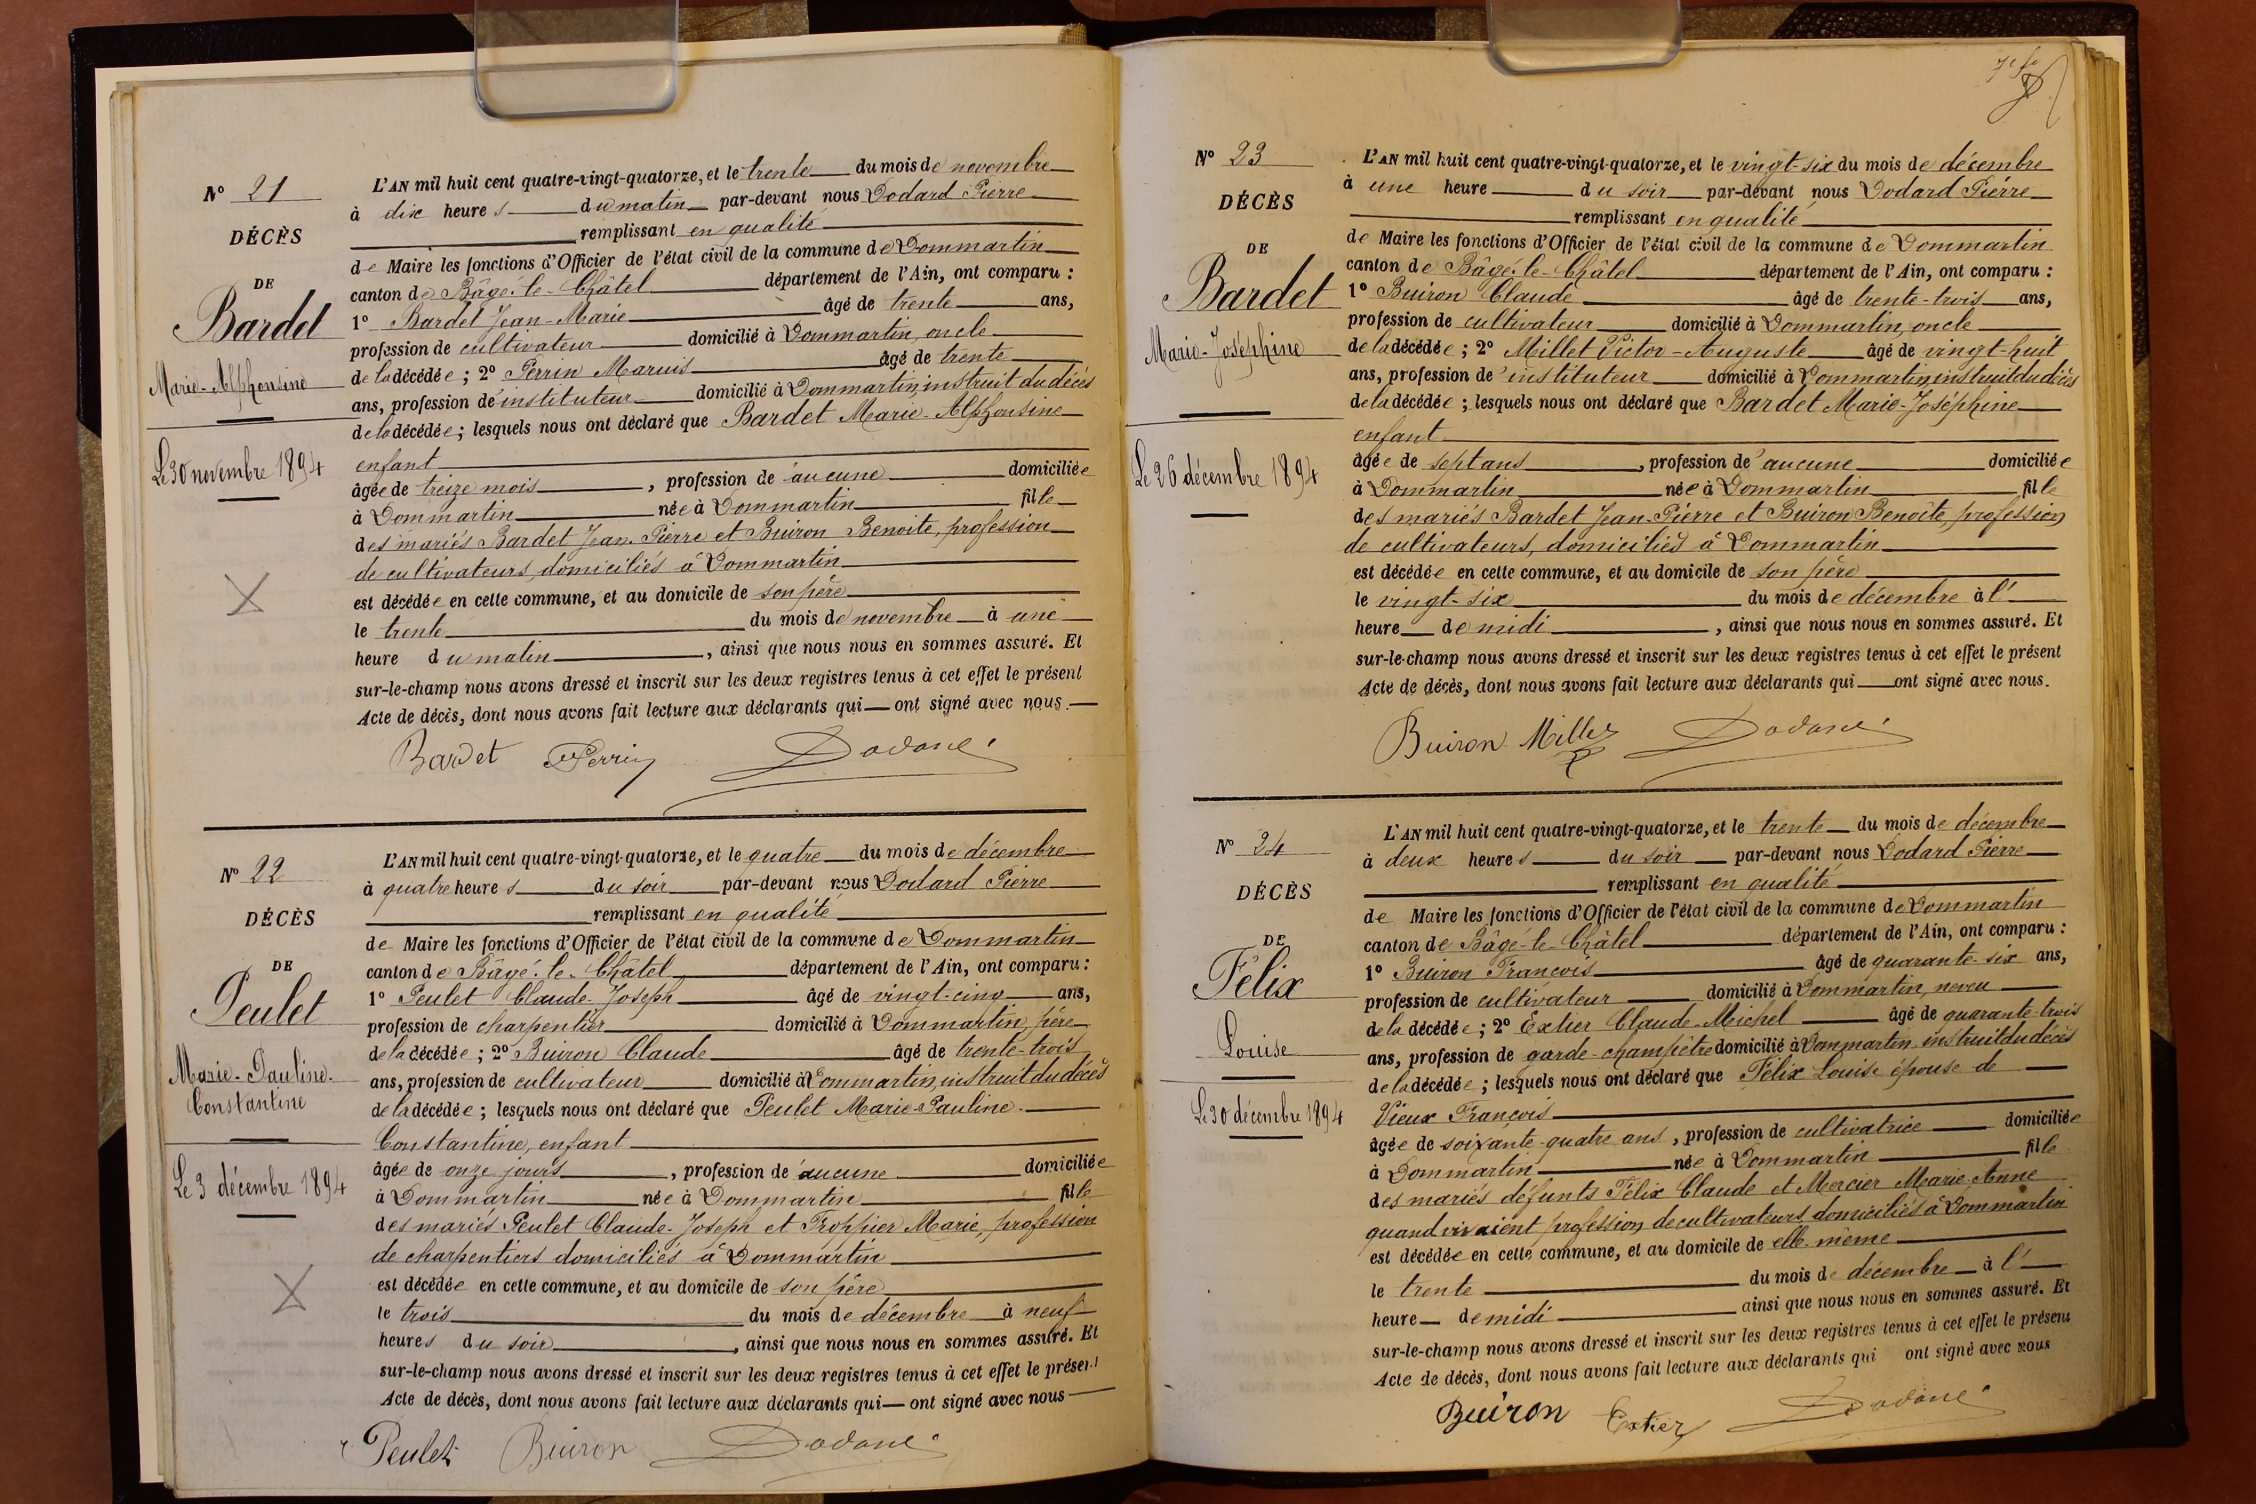 N° 21
DÉCÈS
DE
Bardet
Marie-Alphonsine
Le 30 novembre 1894
L'AN mil huit cent quatre-vingt-quatorze, et le trente du mois de novembre
à dix heures du matin par-devant nous Dodard Pierre
remplissant en qualité
de Maire les fonctions d'Officier de l'état civil de la commune de Dommartin
canton de Bâgé-le-Châtel département de l'Ain, ont comparu :
1° Bardet Jean-Marie âgé de trente ans,
profession de cultivateur domicilié à Dommartin, oncle
de la décédée ; 2° Perrin Marius âgé de trente
ans, profession d'instituteur domicilié à Dommartin, instruit du décès
de la décédée ; lesquels nous ont déclaré que Bardet Marie-Alphonsine
enfant
âgée de treize mois, profession de aucune domiciliée
à Dommartin née à Dommartin fille
des mariés Bardet Jean-Pierre et Buiron Benoite, profession
de cultivateurs, domiciliés à Dommartin
est décédée en cette commune, et au domicile de son père
le trente du mois de novembre à une
heure du matin, ainsi que nous nous en sommes assuré. Et
sur-le-champ nous avons dressé et inscrit sur les deux registres tenus à cet effet le présent
Acte de décès, dont nous avons fait lecture aux déclarants qui — ont signé avec nous.
Bardet Perrin Dodard
N° 22
DÉCÈS
DE
Peulet
Marie-Pauline-
Constantine
Le 3 décembre 1894
L'AN mil huit cent quatre-vingt-quatorze, et le quatre du mois de décembre
à quatre heures du soir par-devant nous Dodard Pierre
remplissant en qualité
de Maire les fonctions d'Officier de l'état civil de la commune de Dommartin
canton de Bâgé-le-Châtel département de l'Ain, ont comparu :
1° Peulet Claude-Joseph âgé de vingt-cinq ans,
profession de charpentier domicilié à Dommartin, père
de la décédée ; 2° Buiron Claude âgé de trente-trois
ans, profession de cultivateur domicilié à Dommartin, instruit du décès
de la décédée ; lesquels nous ont déclaré que Peulet Marie-Pauline-
Constantine, enfant
âgée de onze jours, profession de aucune domiciliée
à Dommartin née à Dommartin fille
des mariés Peulet Claude-Joseph et Froppier Marie, profession
de charpentiers domiciliés à Dommartin
est décédée en cette commune, et au domicile de son père
le trois du mois de décembre à neuf
heures du soir, ainsi que nous nous en sommes assuré. Et
sur-le-champ nous avons dressé et inscrit sur les deux registres tenus à cet effet le présent
Acte de décès, dont nous avons fait lecture aux déclarants qui — ont signé avec nous
Peulet Buiron Dodard
N° 23
DÉCÈS
DE
Bardet
Marie-Joséphine
Le 26 décembre 1894
L'AN mil huit cent quatre-vingt-quatorze, et le vingt-six du mois de décembre
à une heure du soir par-devant nous Dodard Pierre
remplissant en qualité
de Maire les fonctions d'Officier de l'état civil de la commune de Dommartin
canton de Bâgé-le-Châtel département de l'Ain, ont comparu :
1° Buiron Claude âgé de trente-trois ans,
profession de cultivateur domicilié à Dommartin, oncle
de la décédée ; 2° Millet Victor-Auguste âgé de vingt-huit
ans, profession d'instituteur domicilié à Dommartin, instruit du décès
de la décédée ; lesquels nous ont déclaré que Bardet Marie-Joséphine
enfant
âgée de sept ans, profession de aucune domiciliée
à Dommartin née à Dommartin fille
des mariés Bardet Jean-Pierre et Buiron Benoîte, profession
de cultivateurs, domiciliés à Dommartin
est décédée en cette commune, et au domicile de son père
le vingt-six du mois de décembre à l'
heure de midi, ainsi que nous nous en sommes assuré. Et
sur-le-champ nous avons dressé et inscrit sur les deux registres tenus à cet effet le présent
Acte de décès, dont nous avons fait lecture aux déclarants qui — ont signé avec nous.
Buiron Millet Dodard
N° 24
DÉCÈS
DE
Félix
Louise
Le 30 décembre 1894
L'AN mil huit cent quatre-vingt-quatorze, et le trente du mois de décembre
à deux heures du soir par-devant nous Dodard Pierre
remplissant en qualité
de Maire les fonctions d'Officier de l'état civil de la commune de Dommartin
canton de Bâgé-le-Châtel département de l'Ain, ont comparu :
1° Buiron François âgé de quarante-six ans,
profession de cultivateur domicilié à Dommartin, neveu
de la décédée ; 2° Extier Claude-Michel âgé de quarante-trois
ans, profession de garde-champêtre domicilié à Dommartin, instruit du décès
de la décédée ; lesquels nous ont déclaré que Félix Louise épouse de
Vieux François
âgée de soixante-quatre ans, profession de cultivatrice domiciliée
à Dommartin née à Dommartin fille
des mariés défunts Félix Claude et Mercier Marie-Anne
quand vivaient profession de cultivateurs domiciliés à Dommartin
est décédée en cette commune, et au domicile de elle-même
le trente du mois de décembre à l'
heure de midi ainsi que nous nous en sommes assuré. Et
sur-le-champ nous avons dressé et inscrit sur les deux registres tenus à cet effet le présent
Acte de décès, dont nous avons fait lecture aux déclarants qui ont signé avec nous
Buiron Extier Dodard